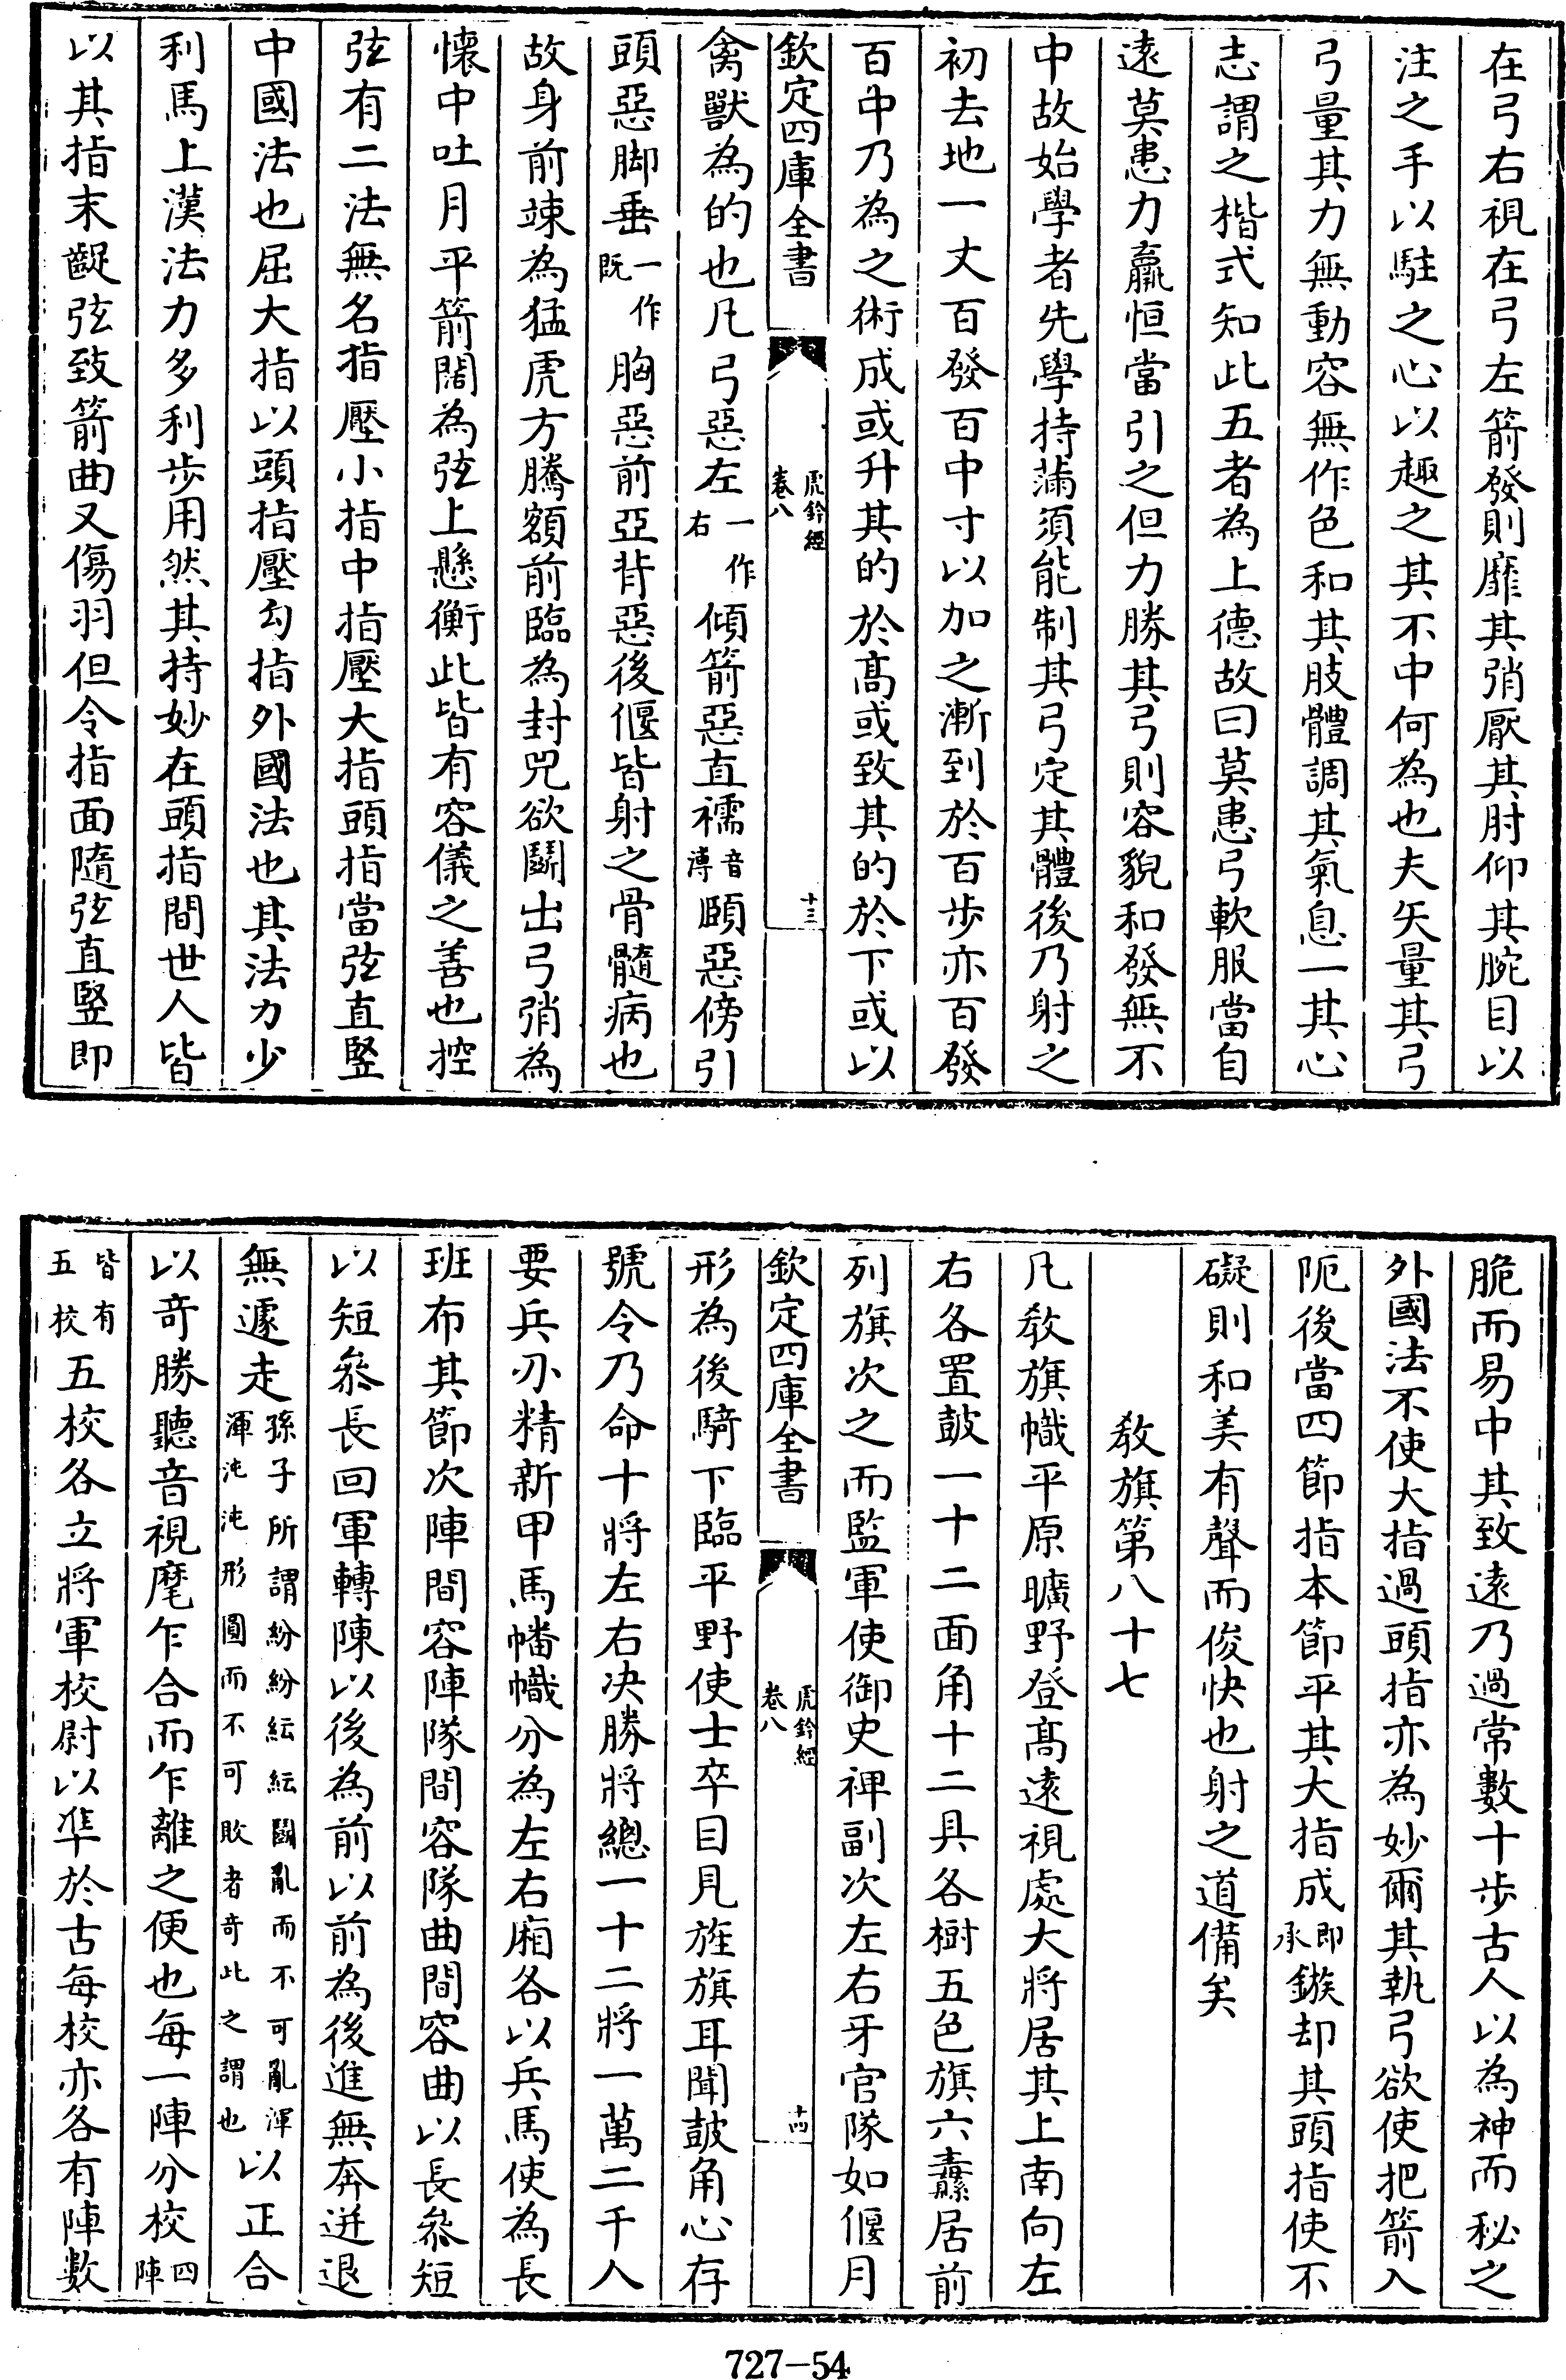 在弓右視在弓左箭發則靡其弰厭其肘仰其腕目以
注之手以駐之心以趣之其不中何為也夫矢量其弓
弓量其力無動容無作色和其肢體調其氣息一其心
志謂之楷式知此五者為上德故曰莫患弓軟服當自
遠莫患力羸恒當引之但力勝其弓則容貌和發無不
中故始學者先學持滿須能制其弓定其體後乃射之
初去地一丈百發百中寸以加之漸到於百步亦百發
百中乃為之術成或升其的於高或致其的於下或以
欽定四庫全書
虎鈐經
卷八
十三
禽獸為的也凡弓惡左一作右傾箭惡直襦音溥頤惡傍引
頭惡脚垂一作既胸惡前亞背惡後偃皆射之骨髓病也
故身前竦為猛虎方騰額前臨為封兕欲鬭出弓弰為
懷中吐月平箭闊為弦上懸衡此皆有容儀之善也控
弦有二法無名指壓小指中指壓大指頭指當弦直竪
中國法也屈大指以頭指壓勾指外國法也其法力少
利馬上漢法力多利步用然其持妙在頭指間世人皆
以其指末齪弦致箭曲又傷羽但令指面隨弦直竪即
脆而易中其致遠乃過常數十步古人以為神而秘之
外國法不使大指過頭指亦為妙爾其執弓欲使把箭入
阨後當四節指本節平其大指成即承鏃却其頭指使不
礙則和美有聲而俊快也射之道備矣
教旗第八十七
凡教旗幟平原曠野登高遠視處大將居其上南向左
右各置鼓一十二面角十二具各樹五色旗六纛居前
列旗次之而監軍使御史裨副次左右牙官隊如偃月
欽定四庫全書
虎鈐經
卷八
十四
形為後騎下臨平野使士卒目見旌旗耳聞鼓角心存
號令乃命十將左右决勝將總一十二將一萬二千人
要兵刃精新甲馬幡幟分為左右廂各以兵馬使為長
班布其節次陣間容陣隊間容隊曲間容曲以長叅短
以短叅長回軍轉陳以後為前以前為後進無奔迸退
無遽走孫子所謂紛紛紜紜鬭亂而不可亂渾渾沌沌形圓而不可敗者奇此之謂也以正合
以奇勝聽音視麾乍合而乍離之便也每一陣分校四陣
皆有五校五校各立將軍校尉以準於古每校亦各有陣數
727-54